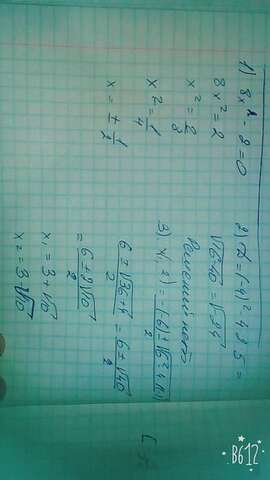 1) 8x² - 2 = 0
8x² = 2
x² = 2/8
x² = 1/4
x = ± 1/2
2) D = (-4)² - 4·2·5 =
√16-40 = √-24
Решений нет
6 ± √36+4 / 2 = 6 ± √40 / 2
= 6 ± 2√10 / 2
x₁ = 3 + √10
x₂ = 3 - √10
B612